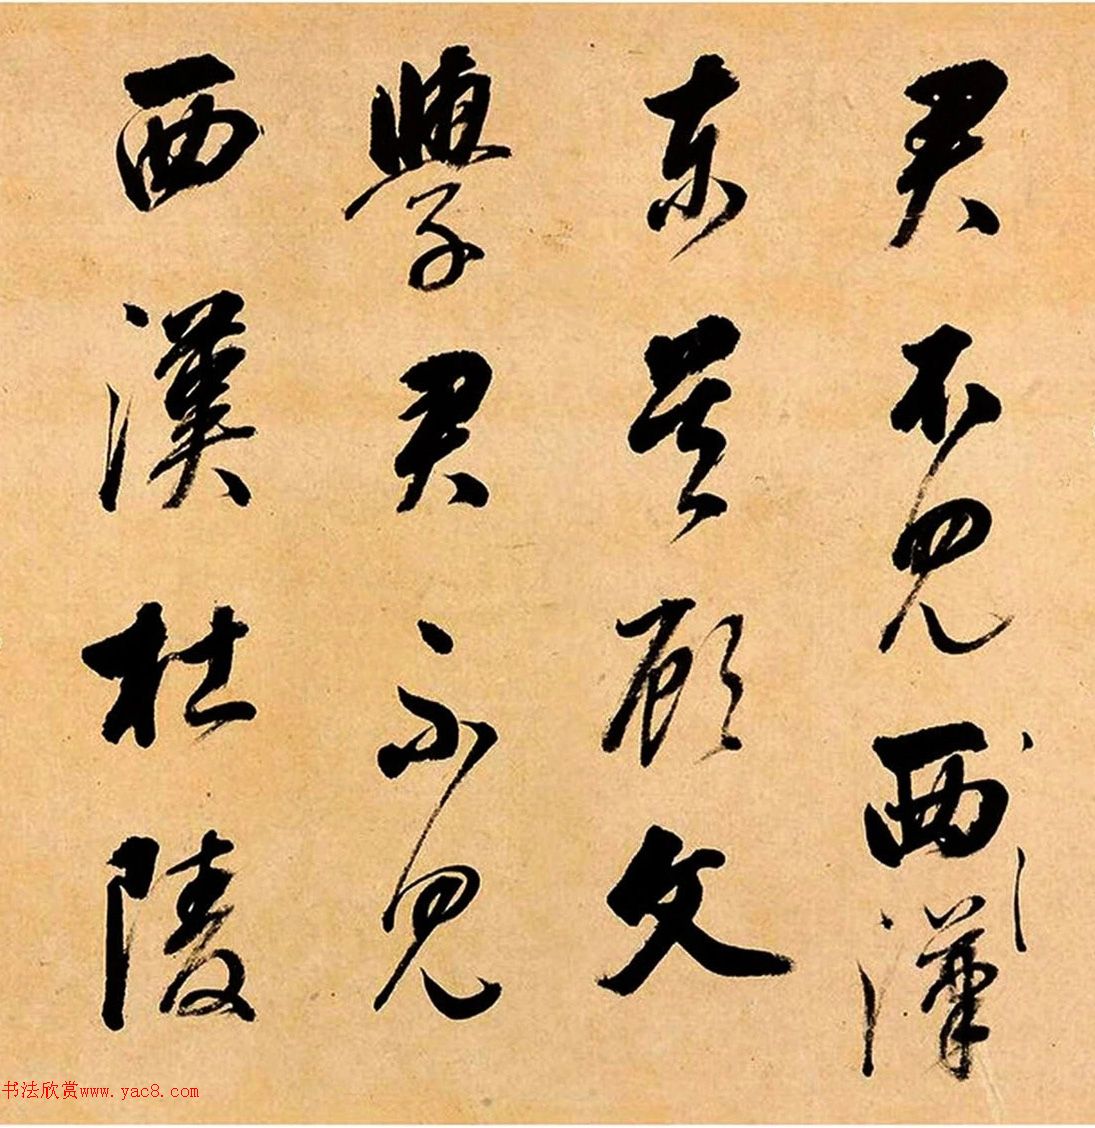 君不見西漢
東吳顧文
學君不見
西漢杜陵
书法欣赏www.yac8.com